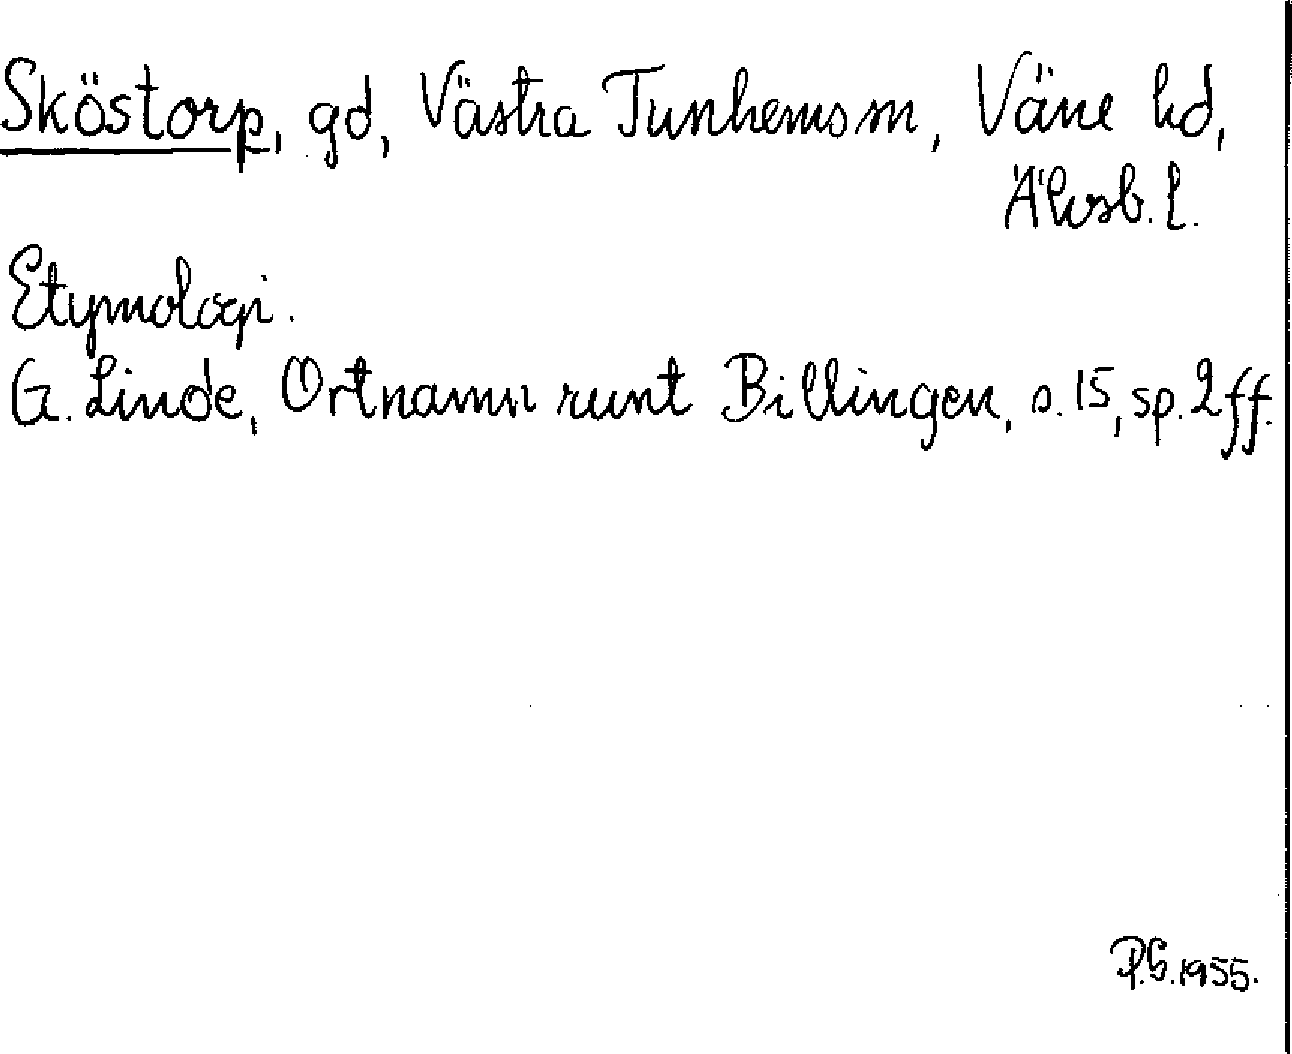 Sköstorp, gd, Västra Tunhems sn, Väne hd,
Älvsb. l.
Etymologi.
G. Linde, Ortnamn runt Billingen, s. 15, sp. 2 ff.
P.G. 1955.